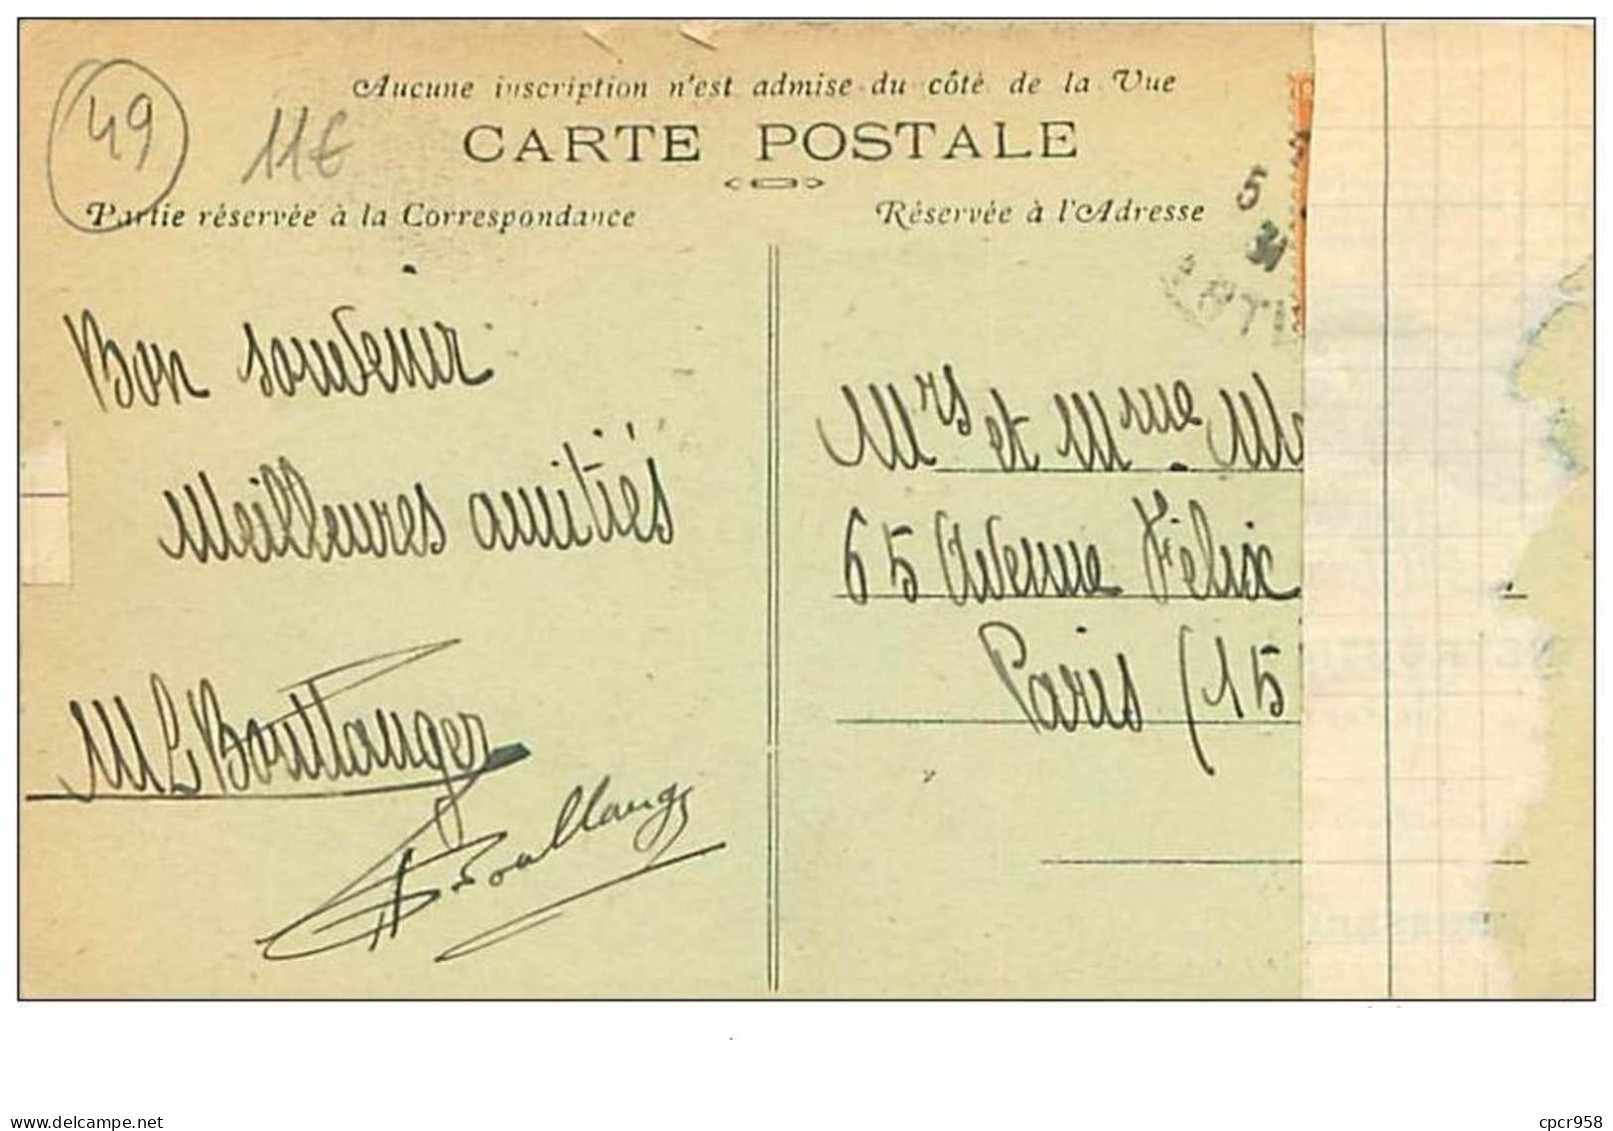 49
11€
Aucune inscription n'est admise du côté de la Vue
CARTE POSTALE
Partie réservée à la Correspondance
Réservée à l'Adresse
5
31
Bon souvenir
Meilleures amitiés
ML Boullanger
Boullang
Mrs et Mme
65 Avenue Félix
Paris (15
www.delcampe.net
cpcr958